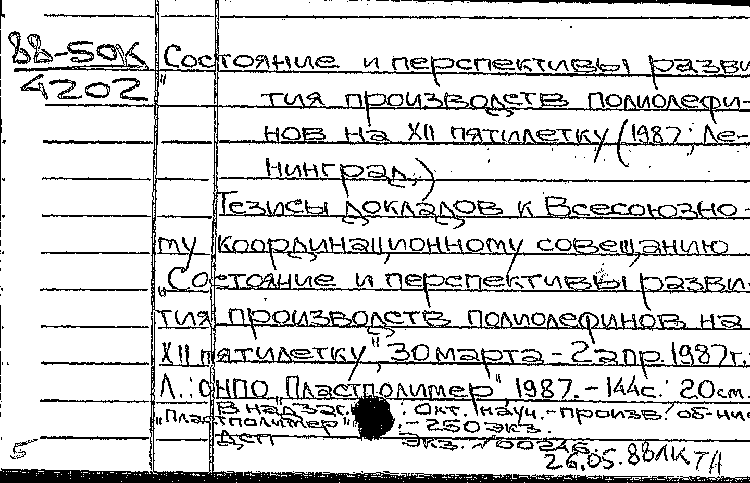 88-50К
4202
Состояние и перспективы разви-
тия производств полиолефи-
нов на XII пятилетку (1987; Ле-
нинград.)
Тезисы докладов к Всесоюзно-
му координационному совещанию
„Состояние и перспективы разви-
тия производств полиолефинов на
XII пятилетку", 30 марта - 2 апр. 1987г.
Л.: ОНПО „Пластполимер", 1987. - 144с.: 20см.
В надзаг.: Окт. науч.-произв. об-ние
„Пластполимер" - 250 экз.
ДСП экз.
26.05.88
5